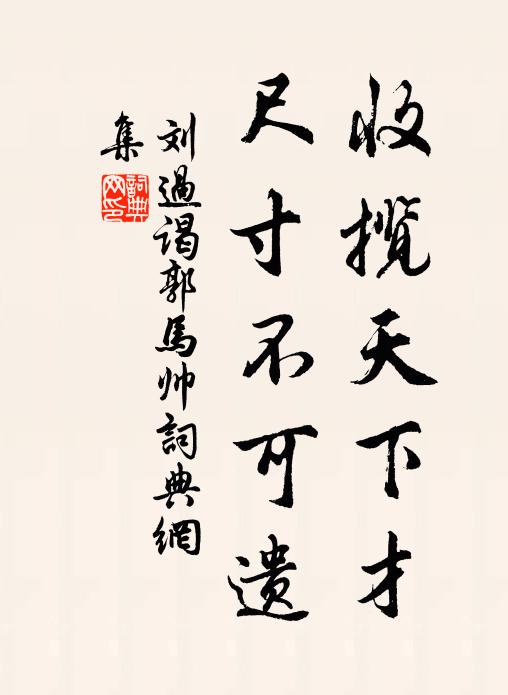 收揽天下才
尺寸不可遗
刘過谒郭馬帅詞典網
集
詞典网印